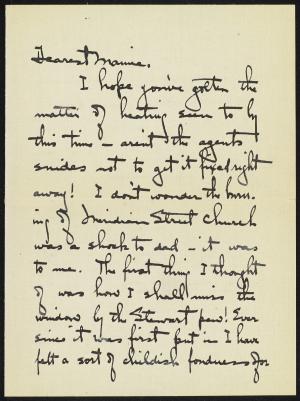 Dearest Mamie.
I hope you've gotten the
matter of heating seen to by
this time – aren't the agents
snides not to get it fixed right
away! I don't wonder the burn-
ing of Meridian Street Church
was a shock to dad – it was
to me. The first thing I thought
of was how I shall miss the
window by the Stewart pew! Ever
since it was first put in I have
felt a sort of childish fondness for